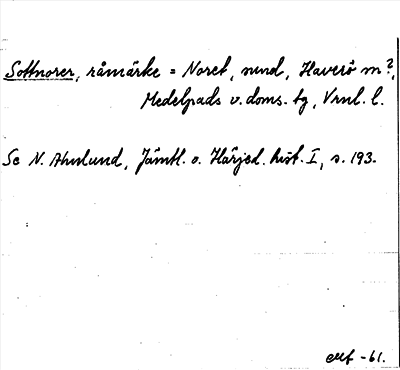 Sottnorer, råmärke = Noret, nmd, Haverö m?,
Medelpads v. doms. tg, Vrnl. l.
Se N. Ahnlund, Jämtl. o. Härjed. hist. I, s. 193.
-61.